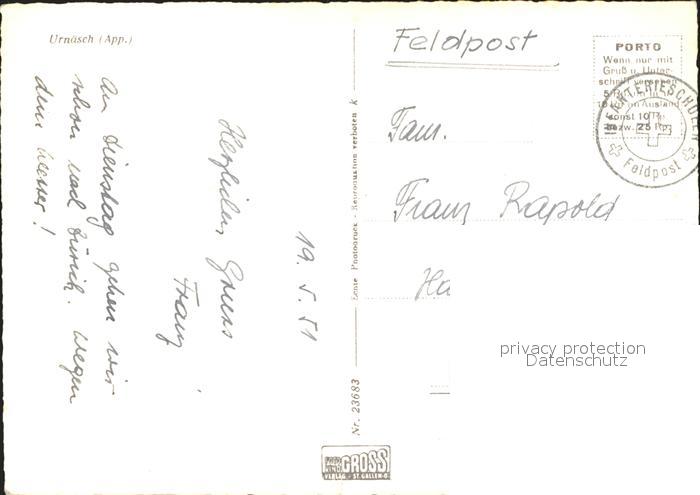 Urnäsch (App.)
19. 5. 51
Herzlichen Gruss
Franz
Am Dienstag gehen wir
schon nach Zürich. Wegen
dem Wetter!
Echte Photodruck - Reproduktion verboten k
Nr. 23683
FOTO
GROSS
VERLAG · ST. GALLEN-O
Feldpost
PORTO
Wenn nur mit
Gruß u. Unter-
schrift versehen
5 Rp.
10 Rp. im Ausland
sonst 10 Rp.
bezw. 25 Rp.
INFANTERIESCHULEN
Feldpost
Fam.
Franz Rapold
Ha
privacy protection
Datenschutz